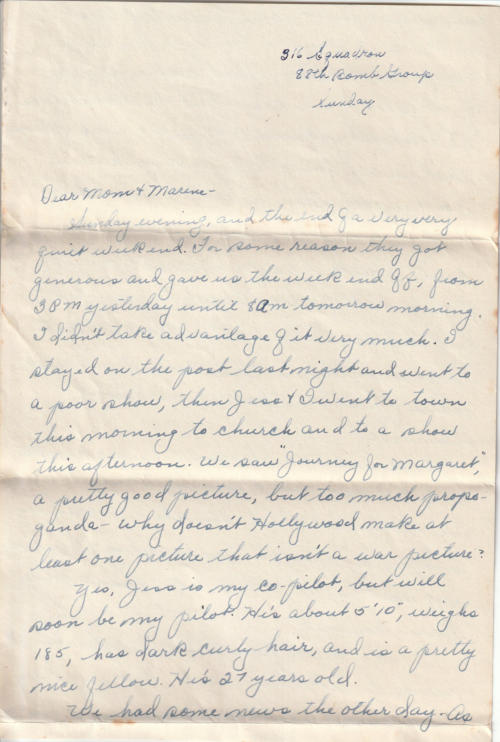 316 Squadron
88th Bomb Group
Sunday
Dear Mom & Marene-
Sunday evening, and the end of a very very
quiet week end. For some reason they got
generous and gave us the week end off, from
3 PM yesterday until 8am tomorrow morning.
I didn't take advantage of it very much. I
stayed on the post last night and went to
a poor show, then Jess & I went to town
this morning to church and to a show
this afternoon. We saw "Journey for Margaret",
a pretty good picture, but too much propo-
ganda - why doesn't Hollywood make at
least one picture that isn't a war picture?
Yes, Jess is my co-pilot, but will
soon be my pilot. He's about 5'10", weighs
185, has dark curly hair, and is a pretty
nice fellow. He's 27 years old.
We had some news the other day - As